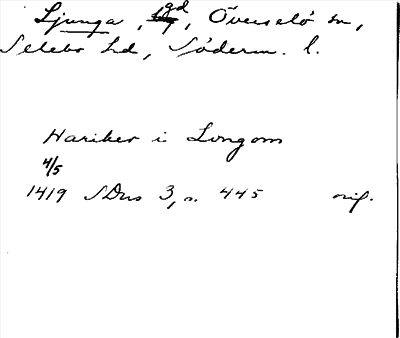 Ljunga, gd, Överselö sn,
Selebo hd, Söderm. l.
Hariker i Lyngom
4/5
1419 SDns 3, s. 445 orig.